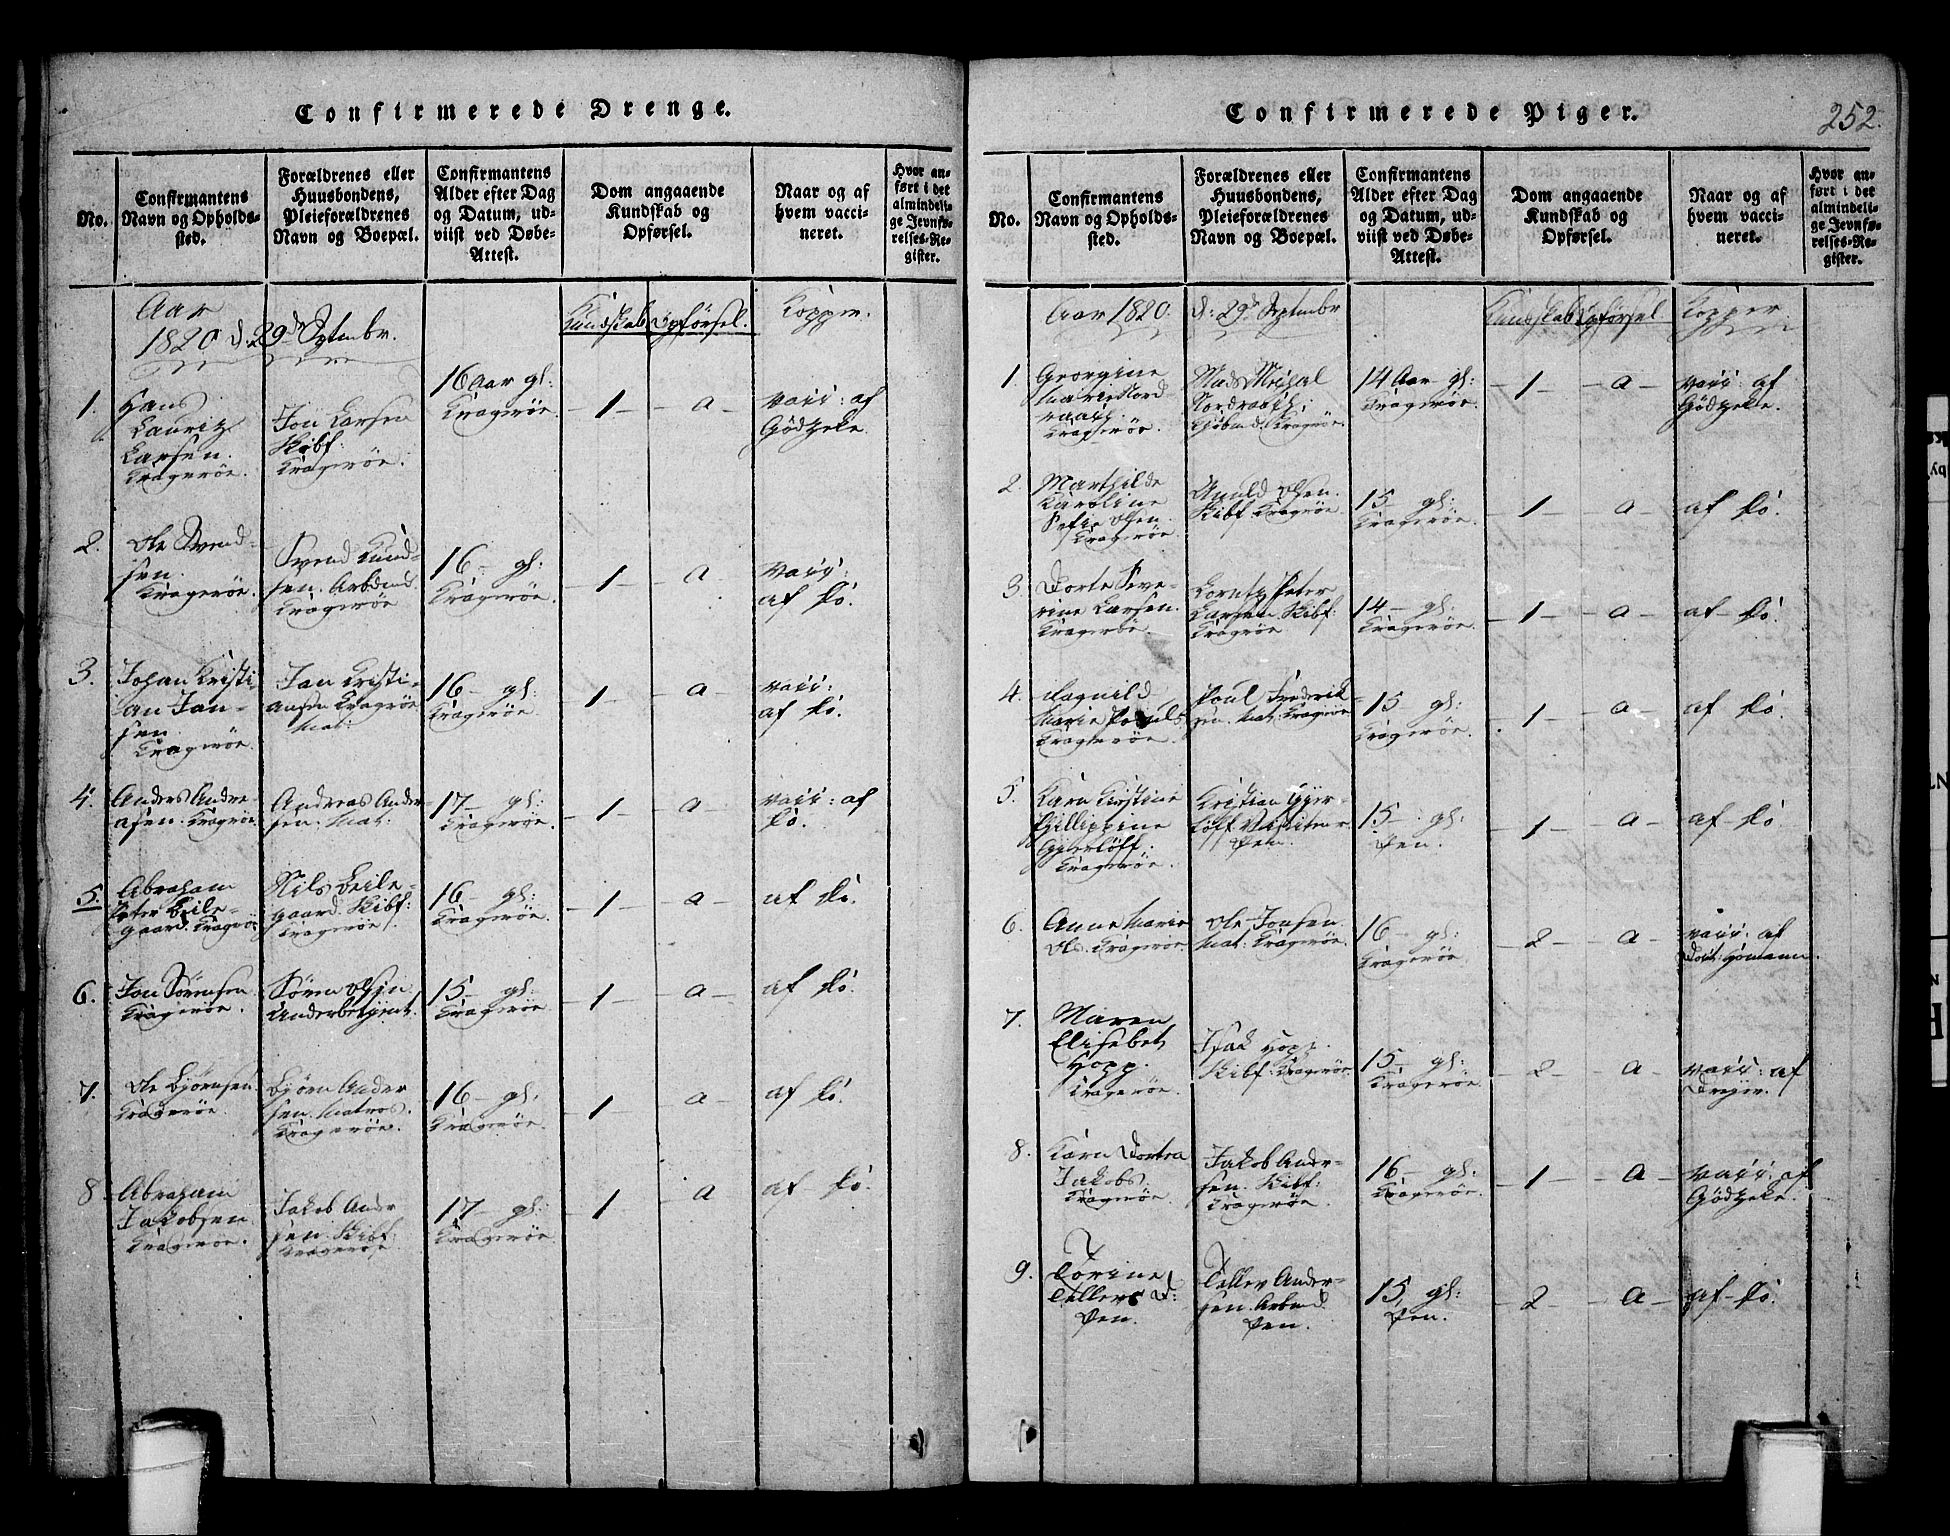 Confirmerede Drenge.
No.
Confirmantens
Navn og Opholds-
sted.
Forældrenes eller
Huusbondens,
Pleieforældrenes
Navn og Boepæl.
Confirmantens
Alder efter Dag
og Datum, ud-
viist ved Døbe-
Attest.
Dom angaaende
Kundskab og
Opførsel.
Naar og af
hvem vacci-
neret.
Hvor an-
ført i det
almindeli-
ge Jevnfø-
relses-Re-
gister.
Aar
1820 d: 29de Septmbr.
Kundskab Opførsel.
Kopper.
1.
Hans
Lauritz
Larsen.
Kragerøe.
Jon Larsen
Skibf:
Kragerøe.
16 Aar gl:
Kragerøe.
1
a
vacc: af
Gödtzeke.
2.
Ole Svend-
sen.
Kragerøe.
Svend Knud-
sen. Arbdmd.
Kragerøe
16 gl:
Kragerøe.
1
a
vacc:
af do.
3.
Johan Kristi-
an Jan-
sen.
Kragerøe.
Jan Kristi-
ansen Kragerøe
Mat:
16 gl:
Kragerøe.
1
a
vacc:
af do.
4.
Anders Andre-
asen. Kragerøe
Andreas Ander-
sen. Mat:
17 gl:
Kragerøe.
1
a
vacc: af
do.
5.
Abraham
Peter Beile-
gaard. Kragerøe
Nils Beile-
gaard. Skibf:
Kragerøe.
16 gl:
Kragerøe.
1
a
af do.
6.
Jon Sörensen
Kragerøe.
Sören Olsen
Underbetjent.
15 gl:
Kragerøe.
1
a
af do.
7.
Ole Bjørnsen.
Kragerøe.
Bjørn Ander
sen. Matros.
Kragerøe.
16 gl:
Kragerøe.
1
a
af do.
8
Abraham
Jakobsen
Kragerøe.
Jakob Ander
sen. Skibf:
Kragerøe.
17 gl:
Kragerøe.
1
a
af do.
Confirmerede Piger.
252.
No.
Confirmantens
Navn og Opholds-
sted.
Forældrenes eller
Huusbondens,
Pleieforældrenes
Navn og Boepæl.
Confirmantens
Alder efter Dag
og Datum, ud-
viist ved Døbe-
Attest.
Dom angaaende
Kundskab og
Opførsel.
Naar og af
hvem vacci-
neret.
Hvor an-
ført i det
almindeli-
ge Jevnfø-
relses-Re-
gister.
Aar 1820. d: 29de Septmbr
Kundskab Opførsel
Kopper
1.
Georgine
Marie Nord
raach.
Kragerøe.
Mads Michal
Nordraach;
Kjöbmd. Kragerøe.
14 Aar gl:
Kragerøe.
1
a
vacc: af
Gödtzeke.
2.
Marthilde
Karoline
Sofie Olsen.
Kragerøe.
Olsen.
Skibf. Kragerøe
15 gl:
Kragerøe.
1
a
af do.
3.
Dorte Seve-
rine Larsen.
Kragerøe.
Lorentz Peter
Larsen Skibf:
Kragerøe
14 gl:
Kragerøe.
1
a
af do.
4.
Ragnild
Marie Pouls
Kragerøe.
Poul Frederik-
sen. Mat: Kragerøe
15 gl:
Kragerøe.
1
a
af do.
5.
Karn Kirstine
Phillippine
Gjerløff.
Kragerøe.
Kristian Gjer-
løff Visiteur
ibid.
15 gl:
ibid.
1
a
af do
6.
Anne Marie
Ols. Kragerøe.
Ole Jonsen.
Mat: Kragerøe.
16 gl:
Kragerøe
2
a
vacc: af
Doct: Homann.
7.
Maren
Elisebet
Hopp.
Kragerøe.
Isak Hopp.
Skibf: Kragerøe.
15 gl:
Kragerøe.
2
a
vacc: af
Dreyer.
8.
Karn Dortea
Jakobs.
Kragerøe.
Jakob Ander-
sen. Skibf:
Kragerøe.
16 gl:
Kragerøe.
1
a
vacc: af
Gödtzeke.
9.
Torine
Tellevs D:
ibid.
Tellev Ander-
sen. Arbmd.
ibid.
15 gl:
ibid.
2
a
af do.